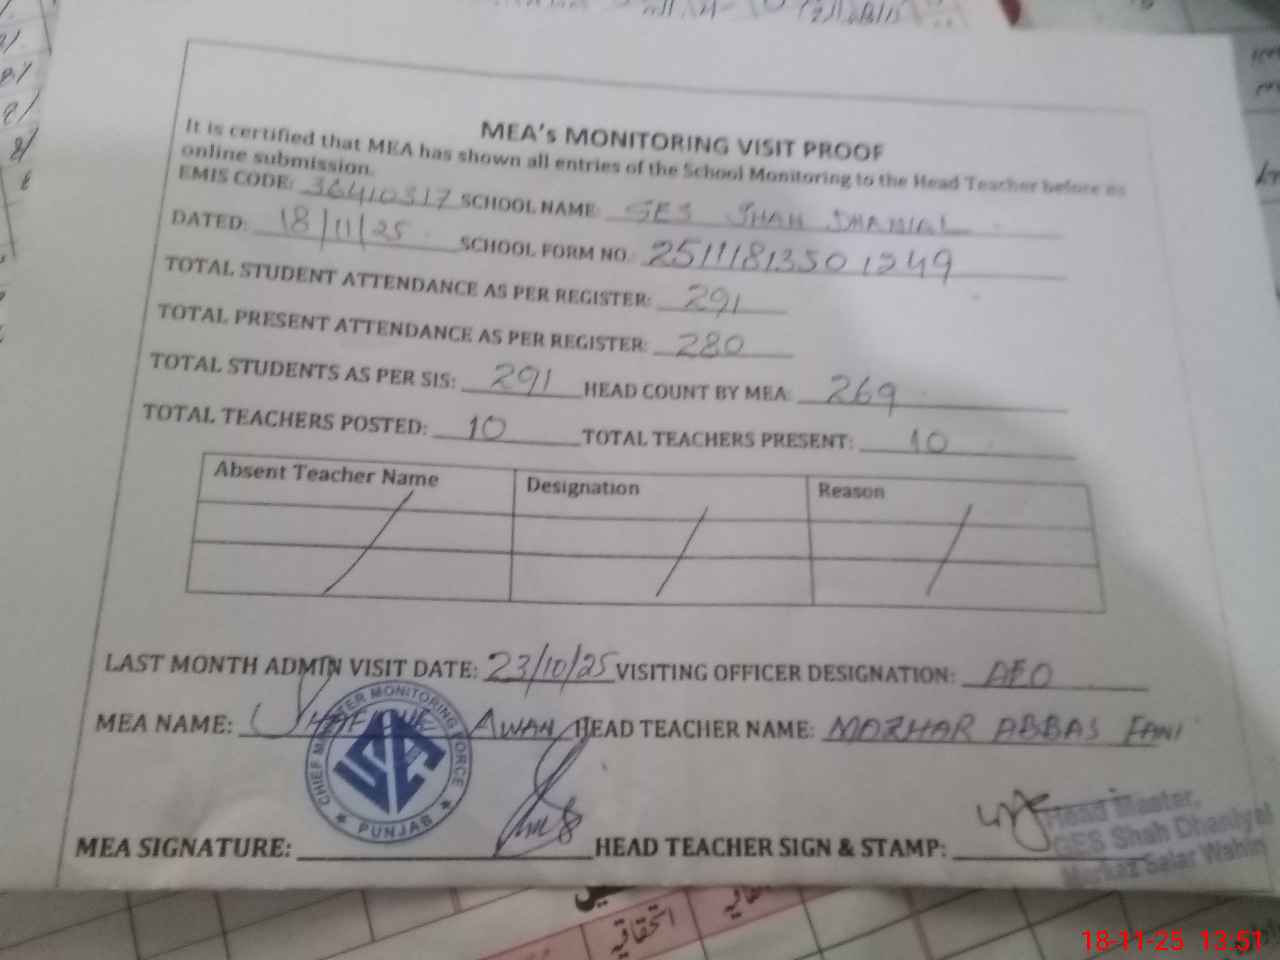 MEA's MONITORING VISIT PROOF
It is certified that MEA has shown all entries of the School Monitoring to the Head Teacher before its
online submission.
EMIS CODE: 38410317 SCHOOL NAME: GES SHAH DHANIAL
DATED: 18/11/25 SCHOOL FORM NO. 2511181350 1249
TOTAL STUDENT ATTENDANCE AS PER REGISTER: 291
TOTAL PRESENT ATTENDANCE AS PER REGISTER: 280
TOTAL STUDENTS AS PER SIS: 291 HEAD COUNT BY MEA: 269
TOTAL TEACHERS POSTED: 10 TOTAL TEACHERS PRESENT: 10
Absent Teacher Name Designation Reason
LAST MONTH ADMIN VISIT DATE: 23/10/25 VISITING OFFICER DESIGNATION: AEO
MEA NAME: AWAN HEAD TEACHER NAME: MAZHAR ABBAS FANI
CHIEF MINISTER MONITORING FORCE
PUNJAB
MEA SIGNATURE: HEAD TEACHER SIGN & STAMP:
Head Master,
GES Shah Dhaniyal
Markaz Salar Wahin
استحقاقیہ
18-11-25 13:51